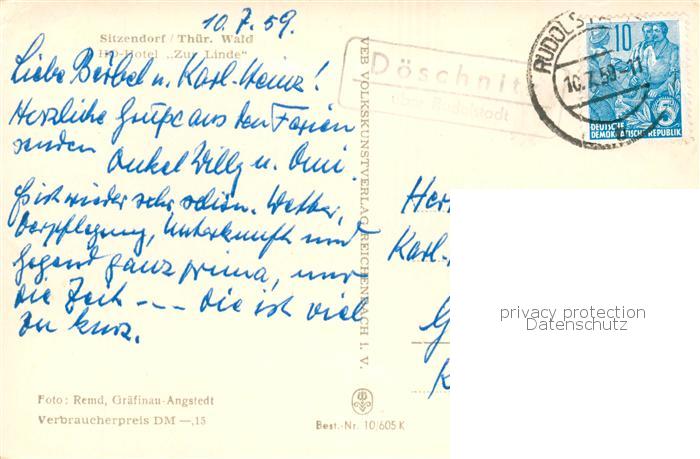 10.7.59.
Sitzendorf / Thür. Wald
HO-Hotel „Zur Linde"
Liebe Bärbel u. Karl-Heinz!
Herzliche Grüße aus den Ferien
senden Onkel Willy u. Omi.
Es ist wieder sehr schön. Wetter,
Verpflegung, Unterkunft und
Gegend ganz prima, nur
die Zeit --- die ist viel
zu kurz.
Foto: Remd, Gräfinau-Angstedt
Verbraucherpreis DM —,15
VEB VOLKSKUNSTVERLAG REICHENBACH I. V.
Best.-Nr. 10/605 K
Döschnit
über Rudolstadt
RUDOLST
10.7.59-11
10
5
DEUTSCHE
DEMOKRATISCHE REPUBLIK
Her
Karl-
G
K
privacy protection
Datenschutz